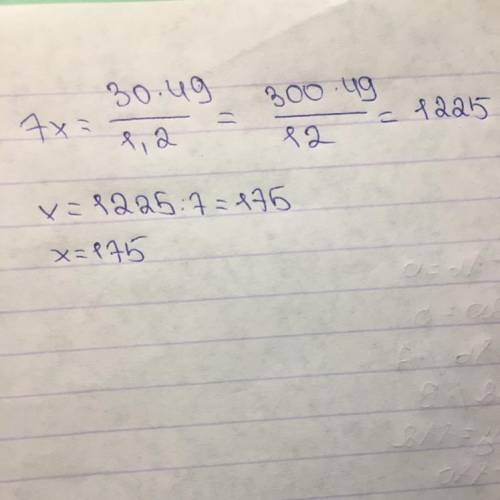 7x = 30·49 / 1,2 = 300·49 / 12 = 1225
x = 1225:7 = 175
x = 175